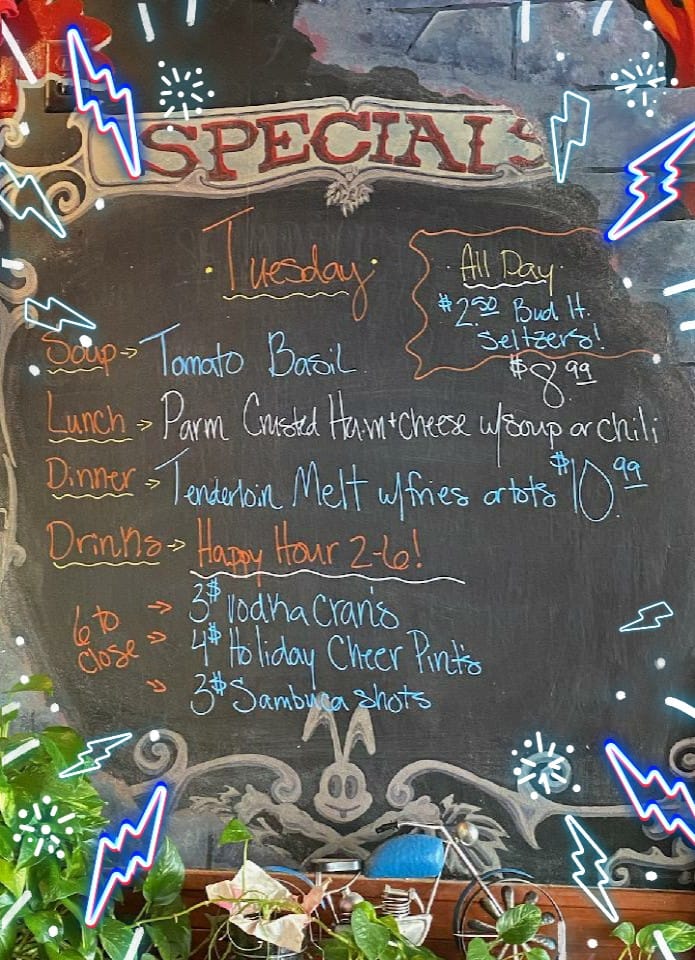 SPECIALS
Tuesday
All Day
$2.50 Bud lt.
Seltzers!
Soup → Tomato Basil
$8.99
Lunch → Parm Crusted Ham + Cheese w/soup or chili
Dinner → Tenderloin Melt w/fries or tots $10.99
Drinks → Happy Hour 2-6!
6 to close → 3$ Vodka Cran's
→ 4$ Holiday Cheer Pint's
→ 3$ Sambuca shots